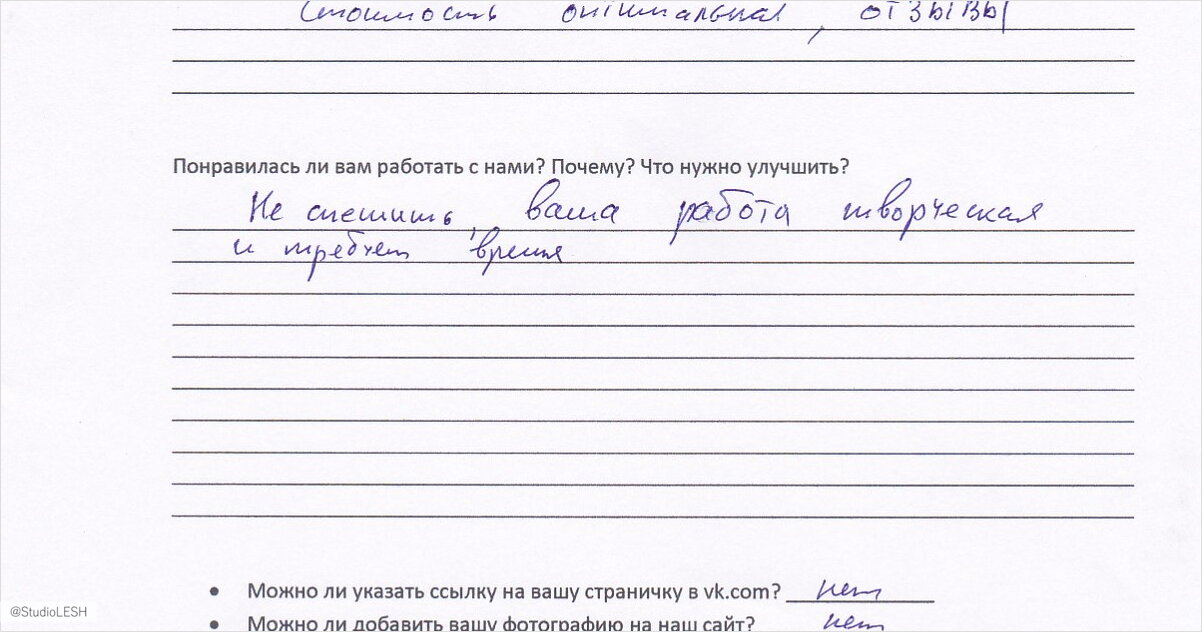 Стоимость оптимальная, отзывы
Понравилась ли вам работать с нами? Почему? Что нужно улучшить?
Не спешить, ваша работа творческая
и требует время
Можно ли указать ссылку на вашу страничку в vk.com? нет
Можно ли добавить вашу фотографию на наш сайт? нет
@StudioLESH